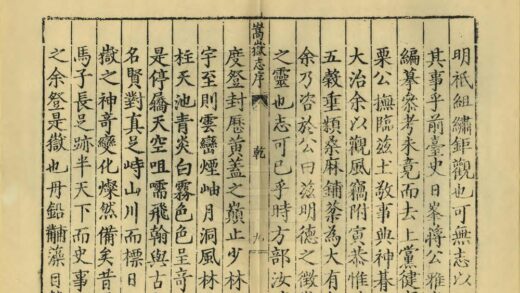 明祇組繡鉅觀也可無志以
其事乎前臺史日峯蔣公雅
編摹叅考未竟而去上黨健
栗公撫臨兹土敎事與神
大治余以觀風竊附寅恭惟
五穀垂穎桑麻鋪棻為大有
余乃咨於公曰兹明德之徴
之靈也志可已乎時方部汝
嵩嶽志序
乾
九
度登封歷黃蓋之巔止少林
宇至則雲巒煙岫月洞風林
柱天池青炎白霧色色呈奇
是停驂天空咀嚅飛翰與古
名賢對真足峙山川而標日
嶽之神奇變化燦然備矣昔
馬子長足跡半天下而史事
之余登是嶽也丹鉛黼藻日